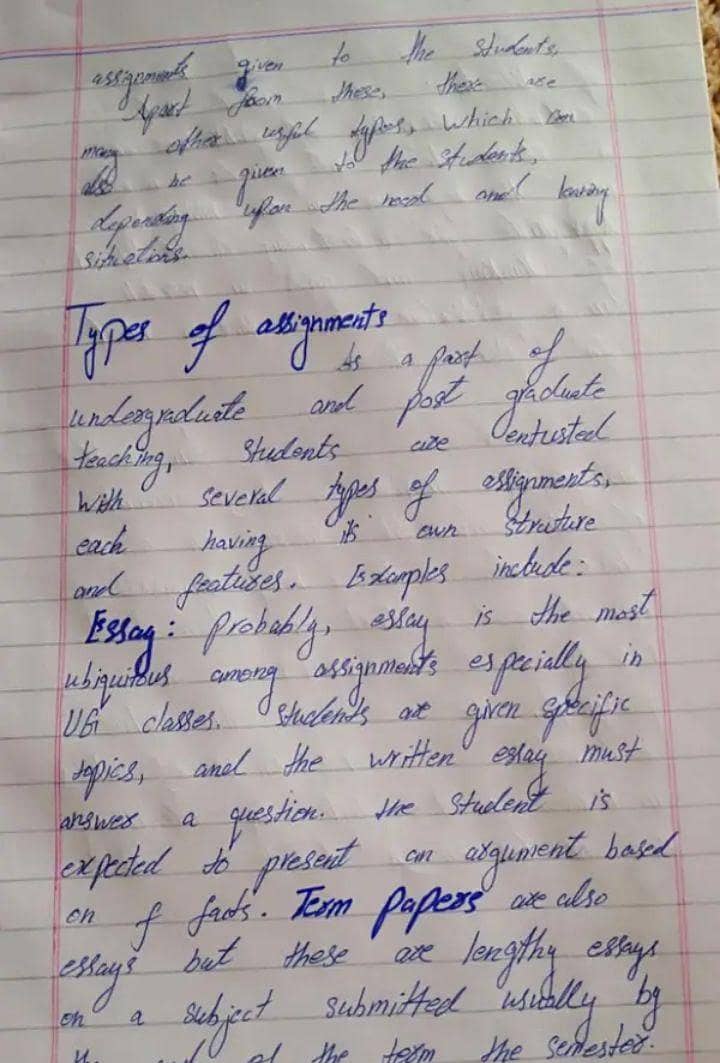 assignments given to the students.
Apart from these, there are
many other useful types, which can
also be given to the students,
depending upon the need and learing
situations.
Types of assignments
As a part of
undergraduate and post graduate
teaching, students are entusted
with several types of assignments,
each having its own struture
and features. Examples include:
Essay: Probably, essay is the most
ubiquitous among assignments especially in
UG classes. Students are given specific
topics, and the written essay must
answer a question. the student is
expected to present an argument based
on f facts. Term papers are also
essays but these are lengthy essays
on a subject submitted usually by
of the term the semester.